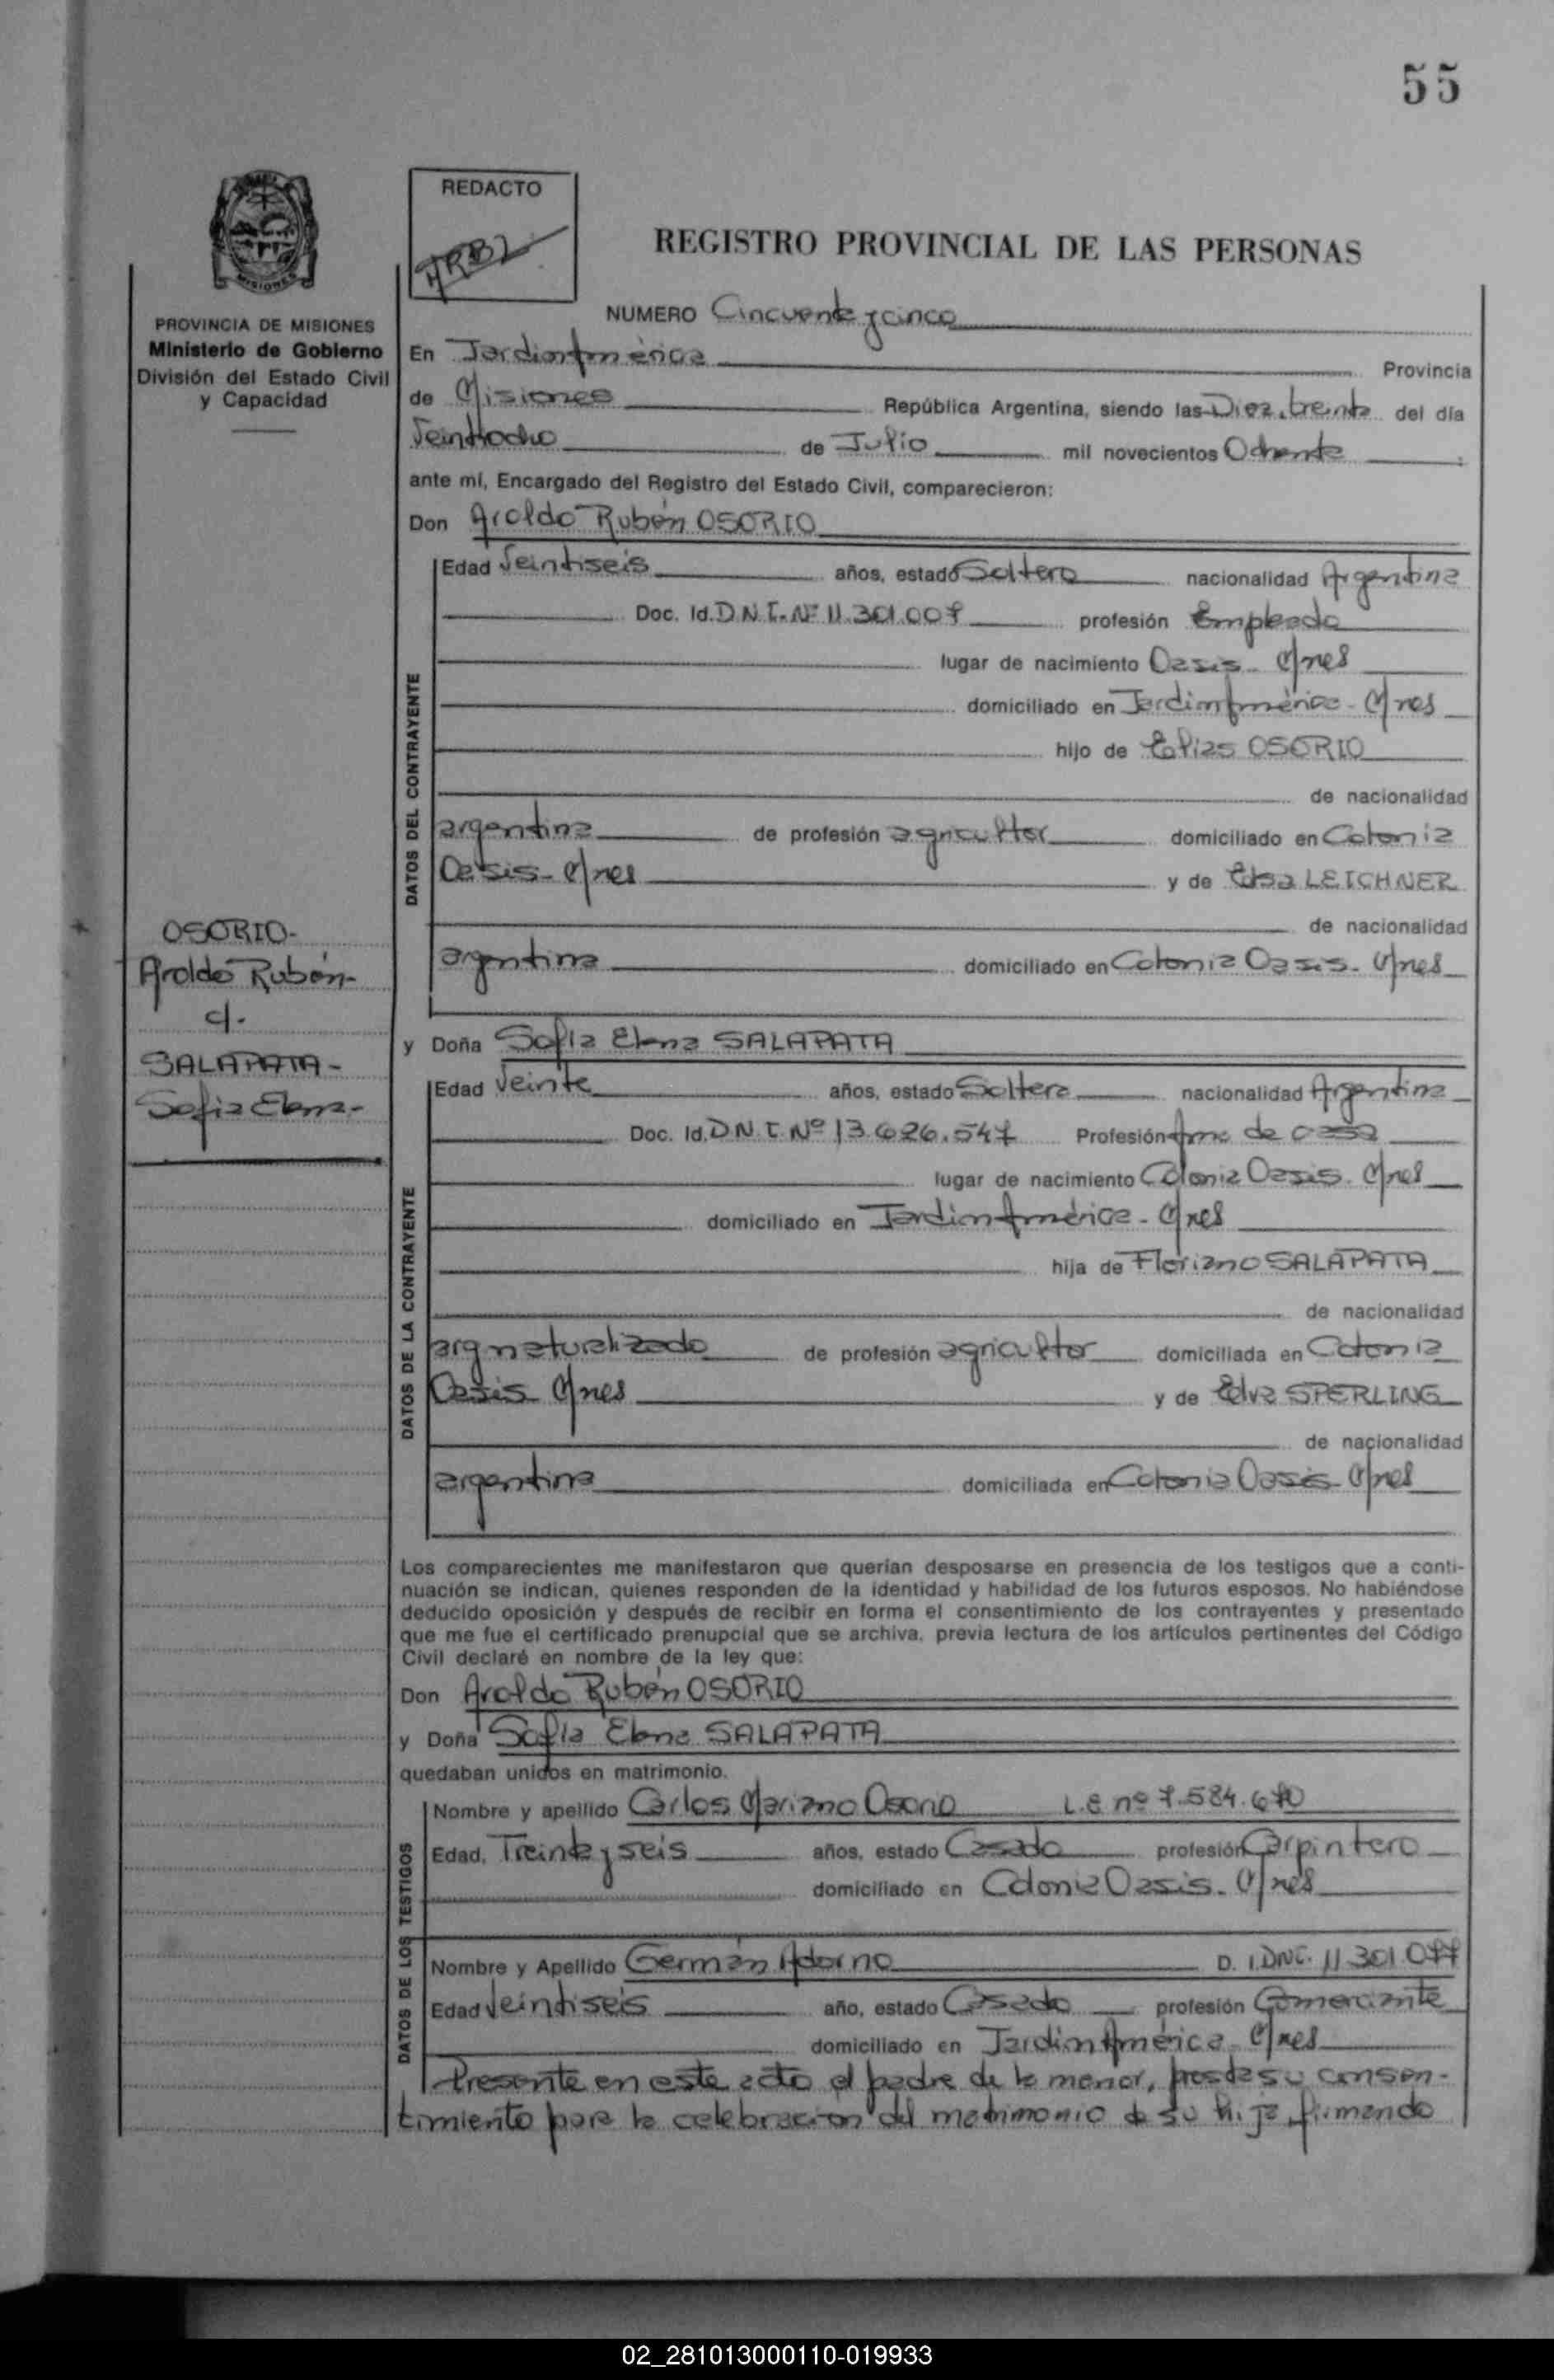 55
REDACTO
REGISTRO PROVINCIAL DE LAS PERSONAS
MISIONES
PROVINCIA DE MISIONES
Ministerio de Gobierno
División del Estado Civil
y Capacidad
NUMERO Cincuenta y cinco
En Jardín América Provincia
de Misiones República Argentina, siendo las Diez, treinta del día
Veintiocho de Julio mil novecientos Ochenta ;
ante mí, Encargado del Registro del Estado Civil, comparecieron:
Don Aroldo Rubén OSORIO
DATOS DEL CONTRAYENTE
Edad Veintiseis años, estado Soltero nacionalidad Argentina
Doc. Id. D.N.I. Nº 11.301.007 profesión Empleado
lugar de nacimiento Oasis - Mnes
domiciliado en Jardín América - Mnes
hijo de Elias OSORIO
de nacionalidad
argentina de profesión agricultor domiciliado en Colonia
Oasis - Mnes y de Elsa LEICHNER
de nacionalidad
argentina domiciliado en Colonia Oasis - Mnes
OSORIO-
Aroldo Rubén-
c/.
SALAPATA-
Sofia Elena-
y Doña Sofia Elena SALAPATA
DATOS DE LA CONTRAYENTE
Edad Veinte años, estado Soltera nacionalidad Argentina
Doc. Id. D.N.I. Nº 13.626.547 Profesión Ama de casa
lugar de nacimiento Colonia Oasis - Mnes
domiciliado en Jardín América - Mnes
hija de Floriano SALAPATA
de nacionalidad
arg naturalizado de profesión agricultor domiciliada en Colonia
Oasis Mnes y de Elva SPERLING
de nacionalidad
argentina domiciliada en Colonia Oasis - Mnes
Los comparecientes me manifestaron que querían desposarse en presencia de los testigos que a conti-
nuación se indican, quienes responden de la identidad y habilidad de los futuros esposos. No habiéndose
deducido oposición y después de recibir en forma el consentimiento de los contrayentes y presentado
que me fue el certificado prenupcial que se archiva, previa lectura de los artículos pertinentes del Código
Civil declaré en nombre de la ley que:
Don Aroldo Rubén OSORIO
y Doña Sofia Elena SALAPATA
quedaban unidos en matrimonio.
DATOS DE LOS TESTIGOS
Nombre y apellido Carlos Mariano Osorio L.E nº 7.584.670
Edad, Treinta y seis años, estado Casado profesión Carpintero
domiciliado en Colonia Oasis - Mnes
Nombre y Apellido Germán Adorno D. I. DNI. 11 301 077
Edad Veintiseis año, estado Casado profesión Comerciante
domiciliado en Jardín América - Mnes
Presente en este acto el padre de la menor, presta su consen-
timiento para la celebración del matrimonio de su hija firmando
02_281013000110-019933